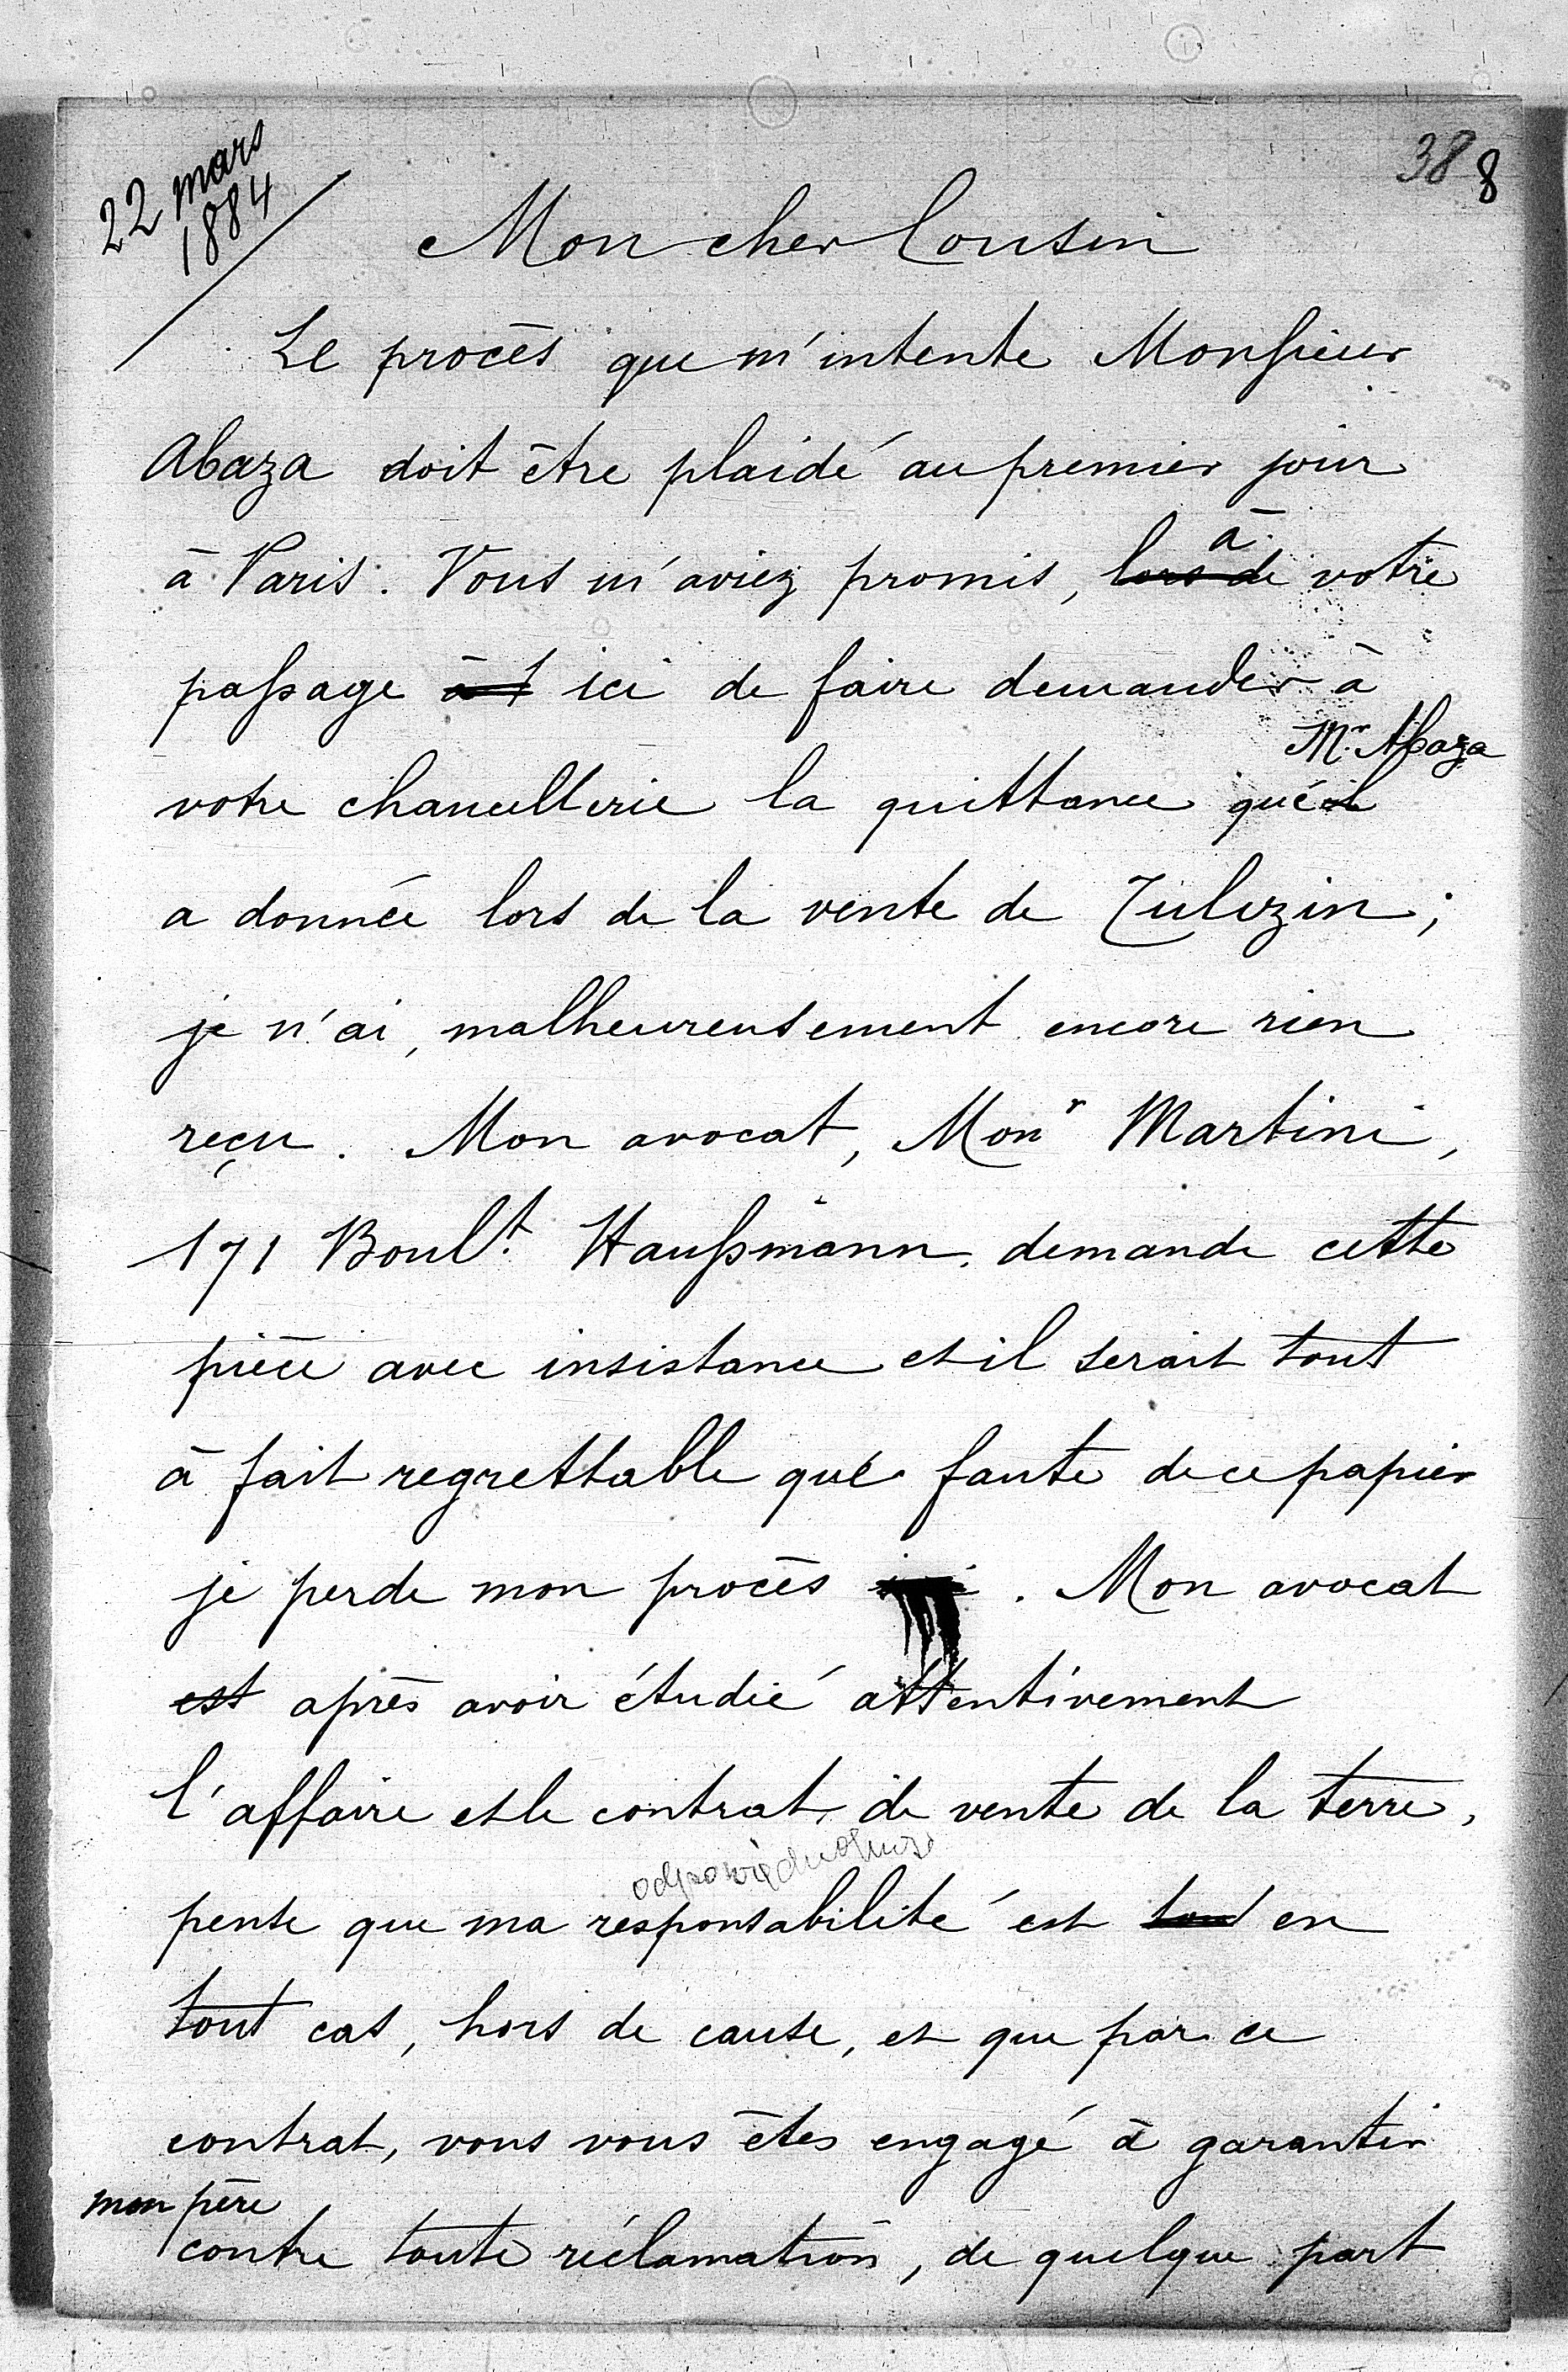 22 mars
1884
38 8
Mon cher Cousin
Le procès que m'intente Monsieur
Abaza doit être plaidé au premier jour
à Paris. Vous m'aviez promis, lors de à votre
passage à ici de faire demander à
votre chancellerie la quittance qu'il Mr. Abaza
a donnée lors de la vente de Tulczin;
je n'ai, malheureusement encore rien
reçu. Mon avocat, Monr Martini,
171 Boult. Haussmann, demande cette
pièce avec insistance et il serait tout
à fait regrettable que faute de ce papier
je perde mon procès. Mon avocat
est après avoir étudié attentivement
l'affaire et le contrat de vente de la terre,
odpowiedzialność
pense que ma responsabilité est tout en
tout cas, hors de cause, et que par ce
contrat, vous vous êtes engagé à garantir
mon père
contre toute réclamation, de quelque part